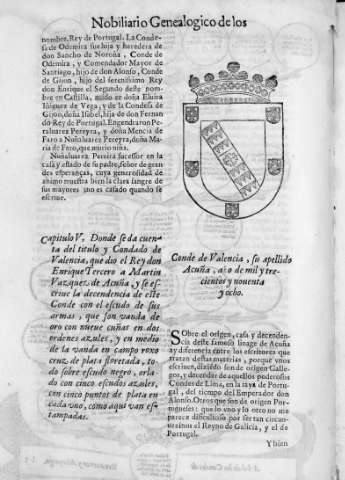 Nobiliario Genealogico de los
nombre, Rey de Portugal. La Conde-
sa de Odemira fue hija y heredera de
don Sancho de Noroña, Conde de
Odemira, y Comendador Mayor de
Santiago, hijo de don Alonso, Conde
de Gijon, hijo del serenissimo Rey
don Enrique el Segundo deste nom-
bre en Castilla, auido en doña Eluira
Iñiguez de Vega, y de la Condesa de
Gijon, doña Isabel, hija de don Fernan
do Rey de Portugal. Engendraron Pe-
raluarez Pereyra, y doña Mencia de
Faro a Nuñaluarez Pereyra, doña Ma-
ria de Faro, que murio niña.
Nuñaluarez Pereira sucessor en la
casa y estado de su padre, señor de gran
des esperanças, cuya generosidad de
animo muestra bien la clara sangre de
sus mayores no es casado quando se
escriue.
Capitulo V. Donde se da cuen-
ta del titulo y Condado de
Valencia, que dio el Rey don
Enrique Tercero a Martin
Vazquez de Acuña, y se es-
criue la decendencia de este
Conde con el escudo de sus
armas, que son vanda de
oro con nueue cuñas en dos
ordenes azules, y en medio
de la vanda en campo roxo
cruz de plata floretada, to-
do sobre escudo negro, orla-
do con cinco escudos azules,
con cinco puntos de plata en
cada vno, como aqui van es-
tampadas.
Conde de Valencia, su apellido
Acuña, año de mil y tre-
cientos y nouenta
y ocho.
Sobre el origen, casa y decenden-
cia deste famoso linage de Acuña
ay diferencia entre los escritores que
tratan destas materias, porque vnos
escriuen, diziendo son de origen Galle-
gos, y decender de aquellos poderosos
Condes de Lima, en la raya de Portu-
gal, del tiempo del Emperador don
Alonso. Otros que son de origen Por-
tugueses: que lo vno y lo otro no me
parece dificultoso por ser tan circun-
uezinos el Reyno de Galicia, y el de
Portugal.
Y bien